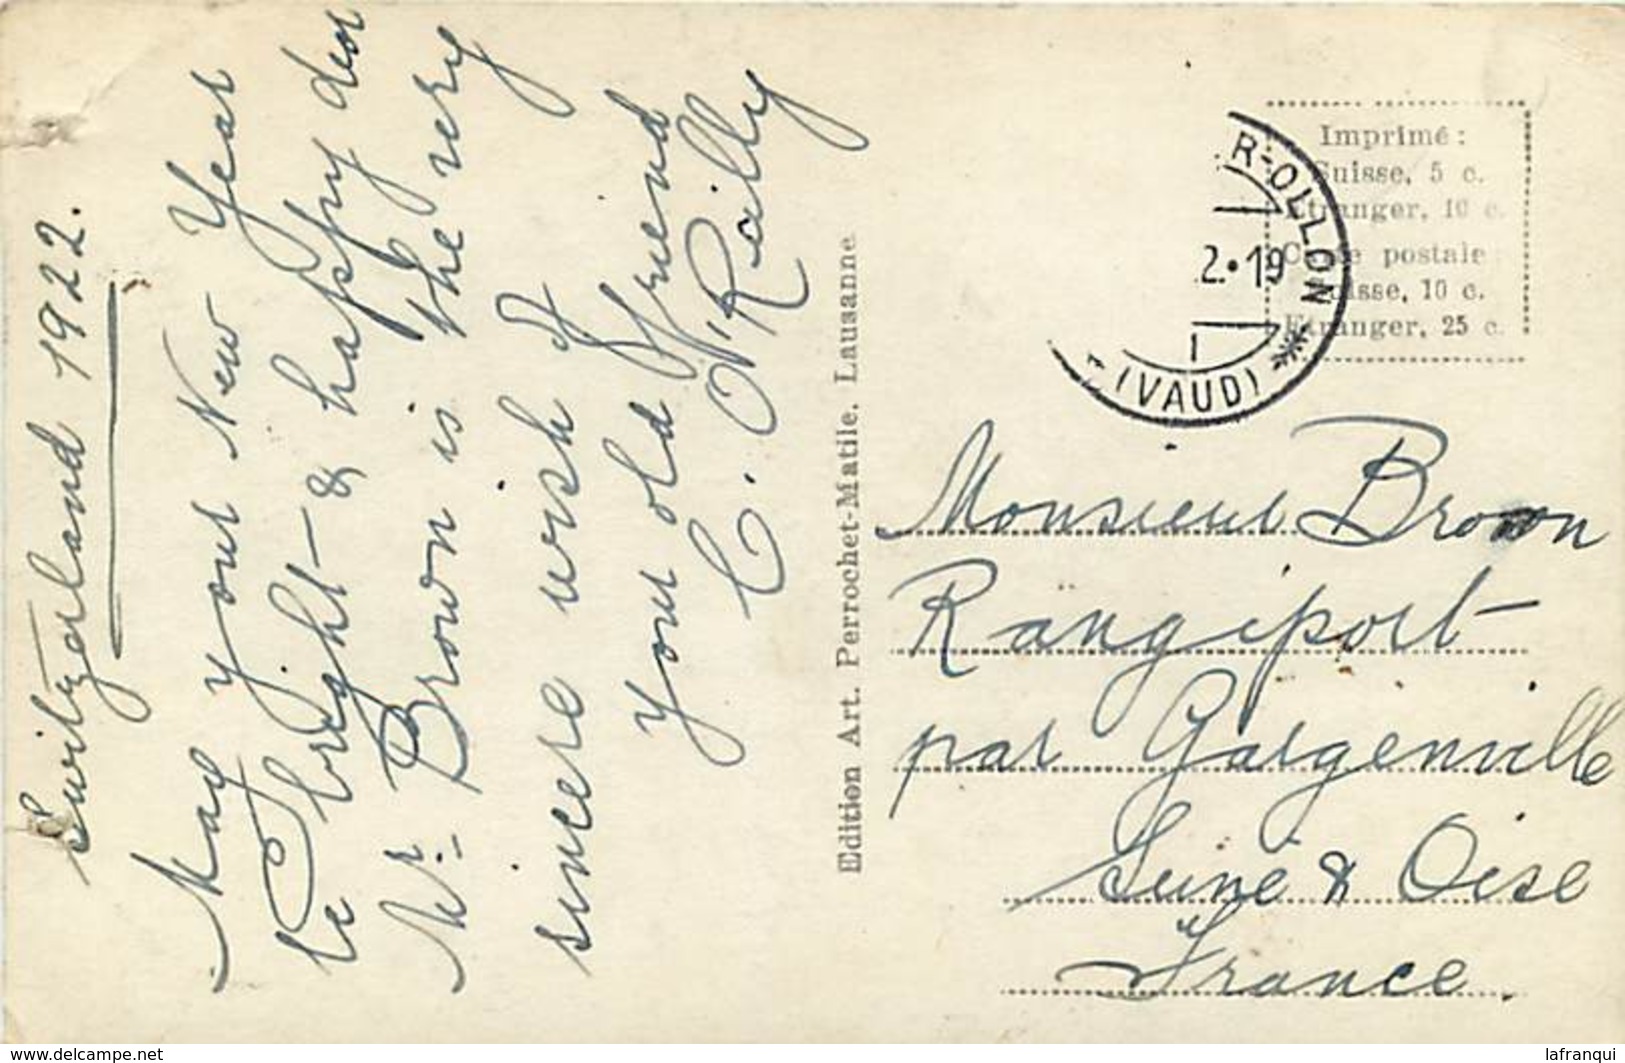 Switzerland 1922.
May your New Year
be bright & happy dear
Mr. Brown is the very
sincere wish of
your old friend
C. O'Reilly
Edition Art. Perrochet-Matile, Lausanne
R-OLLON
2.•19
I
(VAUD)
Imprimé:
Suisse, 5 c.
Etranger, 10 c.
Carte postale:
Suisse, 10 c.
Etranger, 25 c.
Monsieur Brown
Rangiport
par Gargenville
Seine & Oise
France
www.delcampe.net
lafranqui